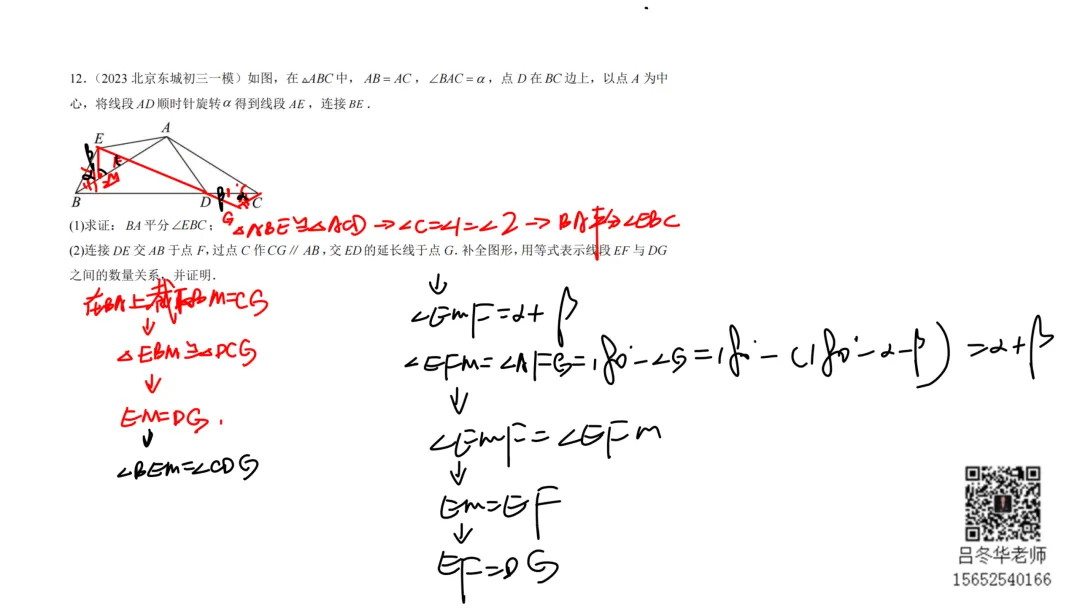 12.（2023 北京东城初三一模）如图，在 △ABC 中， AB = AC ，∠BAC = α ，点 D 在 BC 边上，以点 A 为中
心，将线段 AD 顺时针旋转 α 得到线段 AE ，连接 BE .
E A
B D C
β α M F
β 1 α G
(1)求证： BA 平分 ∠EBC；
△ABE≌△ACD → ∠C=∠1=∠2 → BA平分∠EBC
(2)连接 DE 交 AB 于点 F，过点 C 作 CG∥ AB，交 ED 的延长线于点 G．补全图形，用等式表示线段 EF 与 DG
之间的数量关系，并证明．
在BA上截取BM=CG
↓
△EBM≌△DCG
↓
EM=DG.
↓
∠BEM=∠CDG
↓
∠EMF=α+β
∠EFM=∠AFG=180°-∠G=180°-(180°-α-β)=α+β
↓
∠EMF=∠EFM
↓
EM=EF
↓
EF=DG
吕冬华老师
15652540166